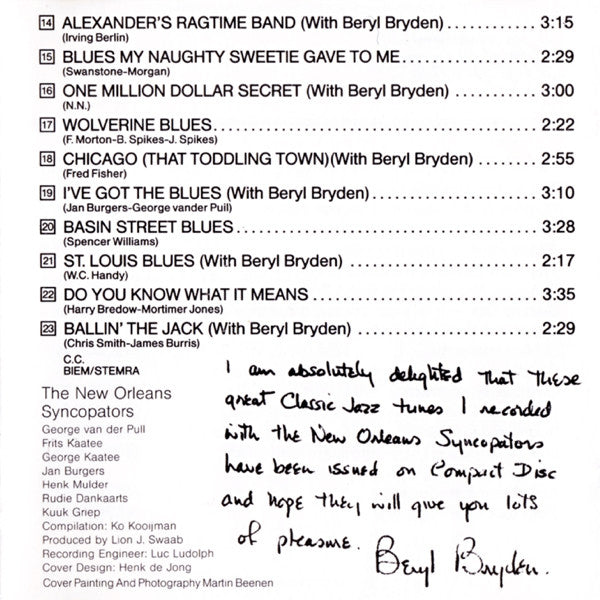 14 ALEXANDER'S RAGTIME BAND (With Beryl Bryden) ............ 3:15
(Irving Berlin)
15 BLUES MY NAUGHTY SWEETIE GAVE TO ME ................. 2:29
(Swanstone-Morgan)
16 ONE MILLION DOLLAR SECRET (With Beryl Bryden) ........... 3:00
(N.N.)
17 WOLVERINE BLUES ........................................ 2:22
(F. Morton-B. Spikes-J. Spikes)
18 CHICAGO (THAT TODDLING TOWN)(With Beryl Bryden) ......... 2:55
(Fred Fisher)
19 I'VE GOT THE BLUES (With Beryl Bryden) .................... 3:10
(Jan Burgers-George vander Pull)
20 BASIN STREET BLUES ..................................... 3:28
(Spencer Williams)
21 ST. LOUIS BLUES (With Beryl Bryden) ....................... 2:17
(W.C. Handy)
22 DO YOU KNOW WHAT IT MEANS ............................ 3:35
(Harry Bredow-Mortimer Jones)
23 BALLIN' THE JACK (With Beryl Bryden) ...................... 2:29
(Chris Smith-James Burris)
C.C.
BIEM/STEMRA
The New Orleans
Syncopators
George van der Pull
Frits Kaatee
George Kaatee
Jan Burgers
Henk Mulder
Rudie Dankaarts
Kuuk Griep
Compilation: Ko Kooijman
Produced by Lion J. Swaab
Recording Engineer: Luc Ludolph
Cover Design: Henk de Jong
Cover Painting And Photography Martin Beenen
I am absolutely delighted that these
great Classic Jazz tunes I recorded
with the New Orleans Syncopators
have been issued on Compact Disc
and hope they will give you lots
of pleasure. Beryl Bryden.